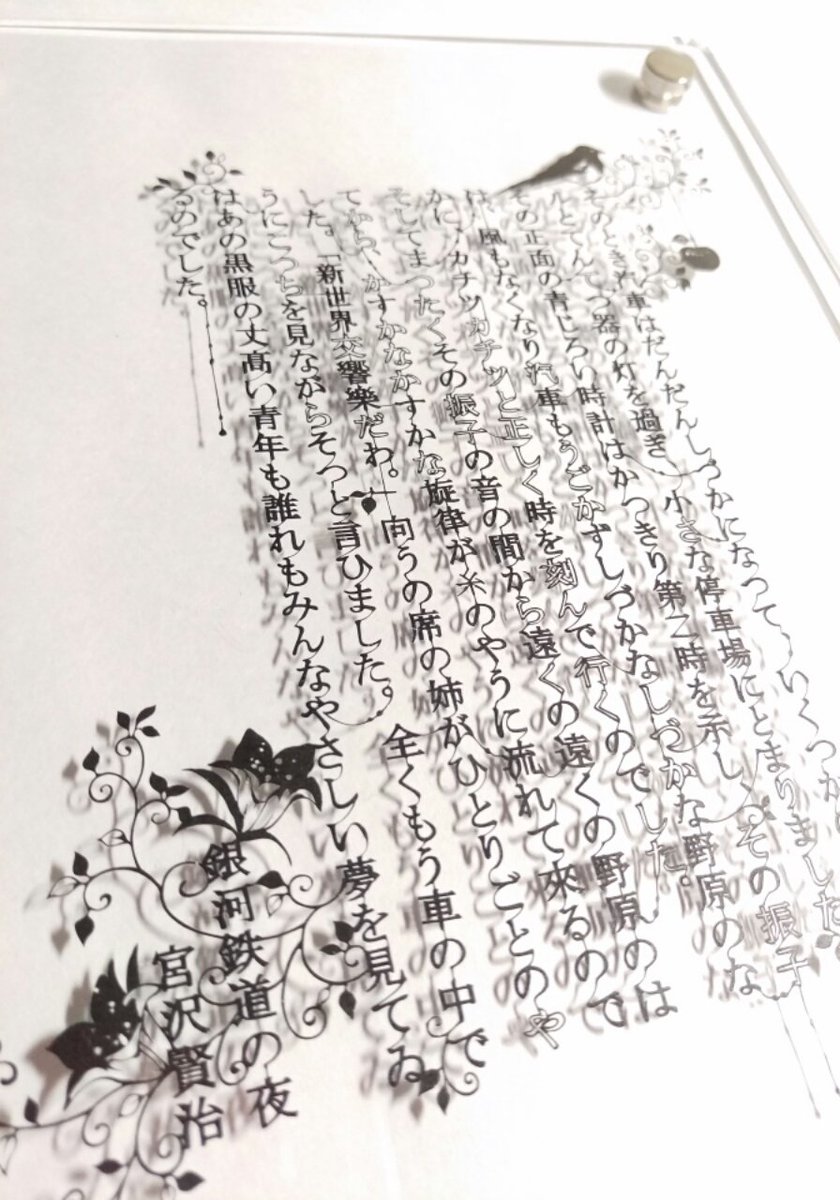 そのとき汽車はだんだんしづかになって、いくつか
ルとてんてつ器の灯を過ぎ、小さな停車場にとまりました。
その正面の青じろい時計はかつきり第二時を示しその振子
は、風もなくなり汽車もうごかずしづかなしづかな野原のな
かに、カチツカチツと正しく時を刻んで行くのでした。
そしてまつたくその振子の音の間から遠くの遠くの野原のは
てから、かすかなかすかな旋律が糸のやうに流れて來るので
した。「新世界交響樂だわ。」向うの席の姉がひとりごとのや
うにこつちを見ながらそつと言ひました。全くもう車の中で
はあの黒服の丈髙い青年も誰れもみんなやさしい夢を見てゐ
るのでした。
銀河鉄道の夜
宮沢賢治